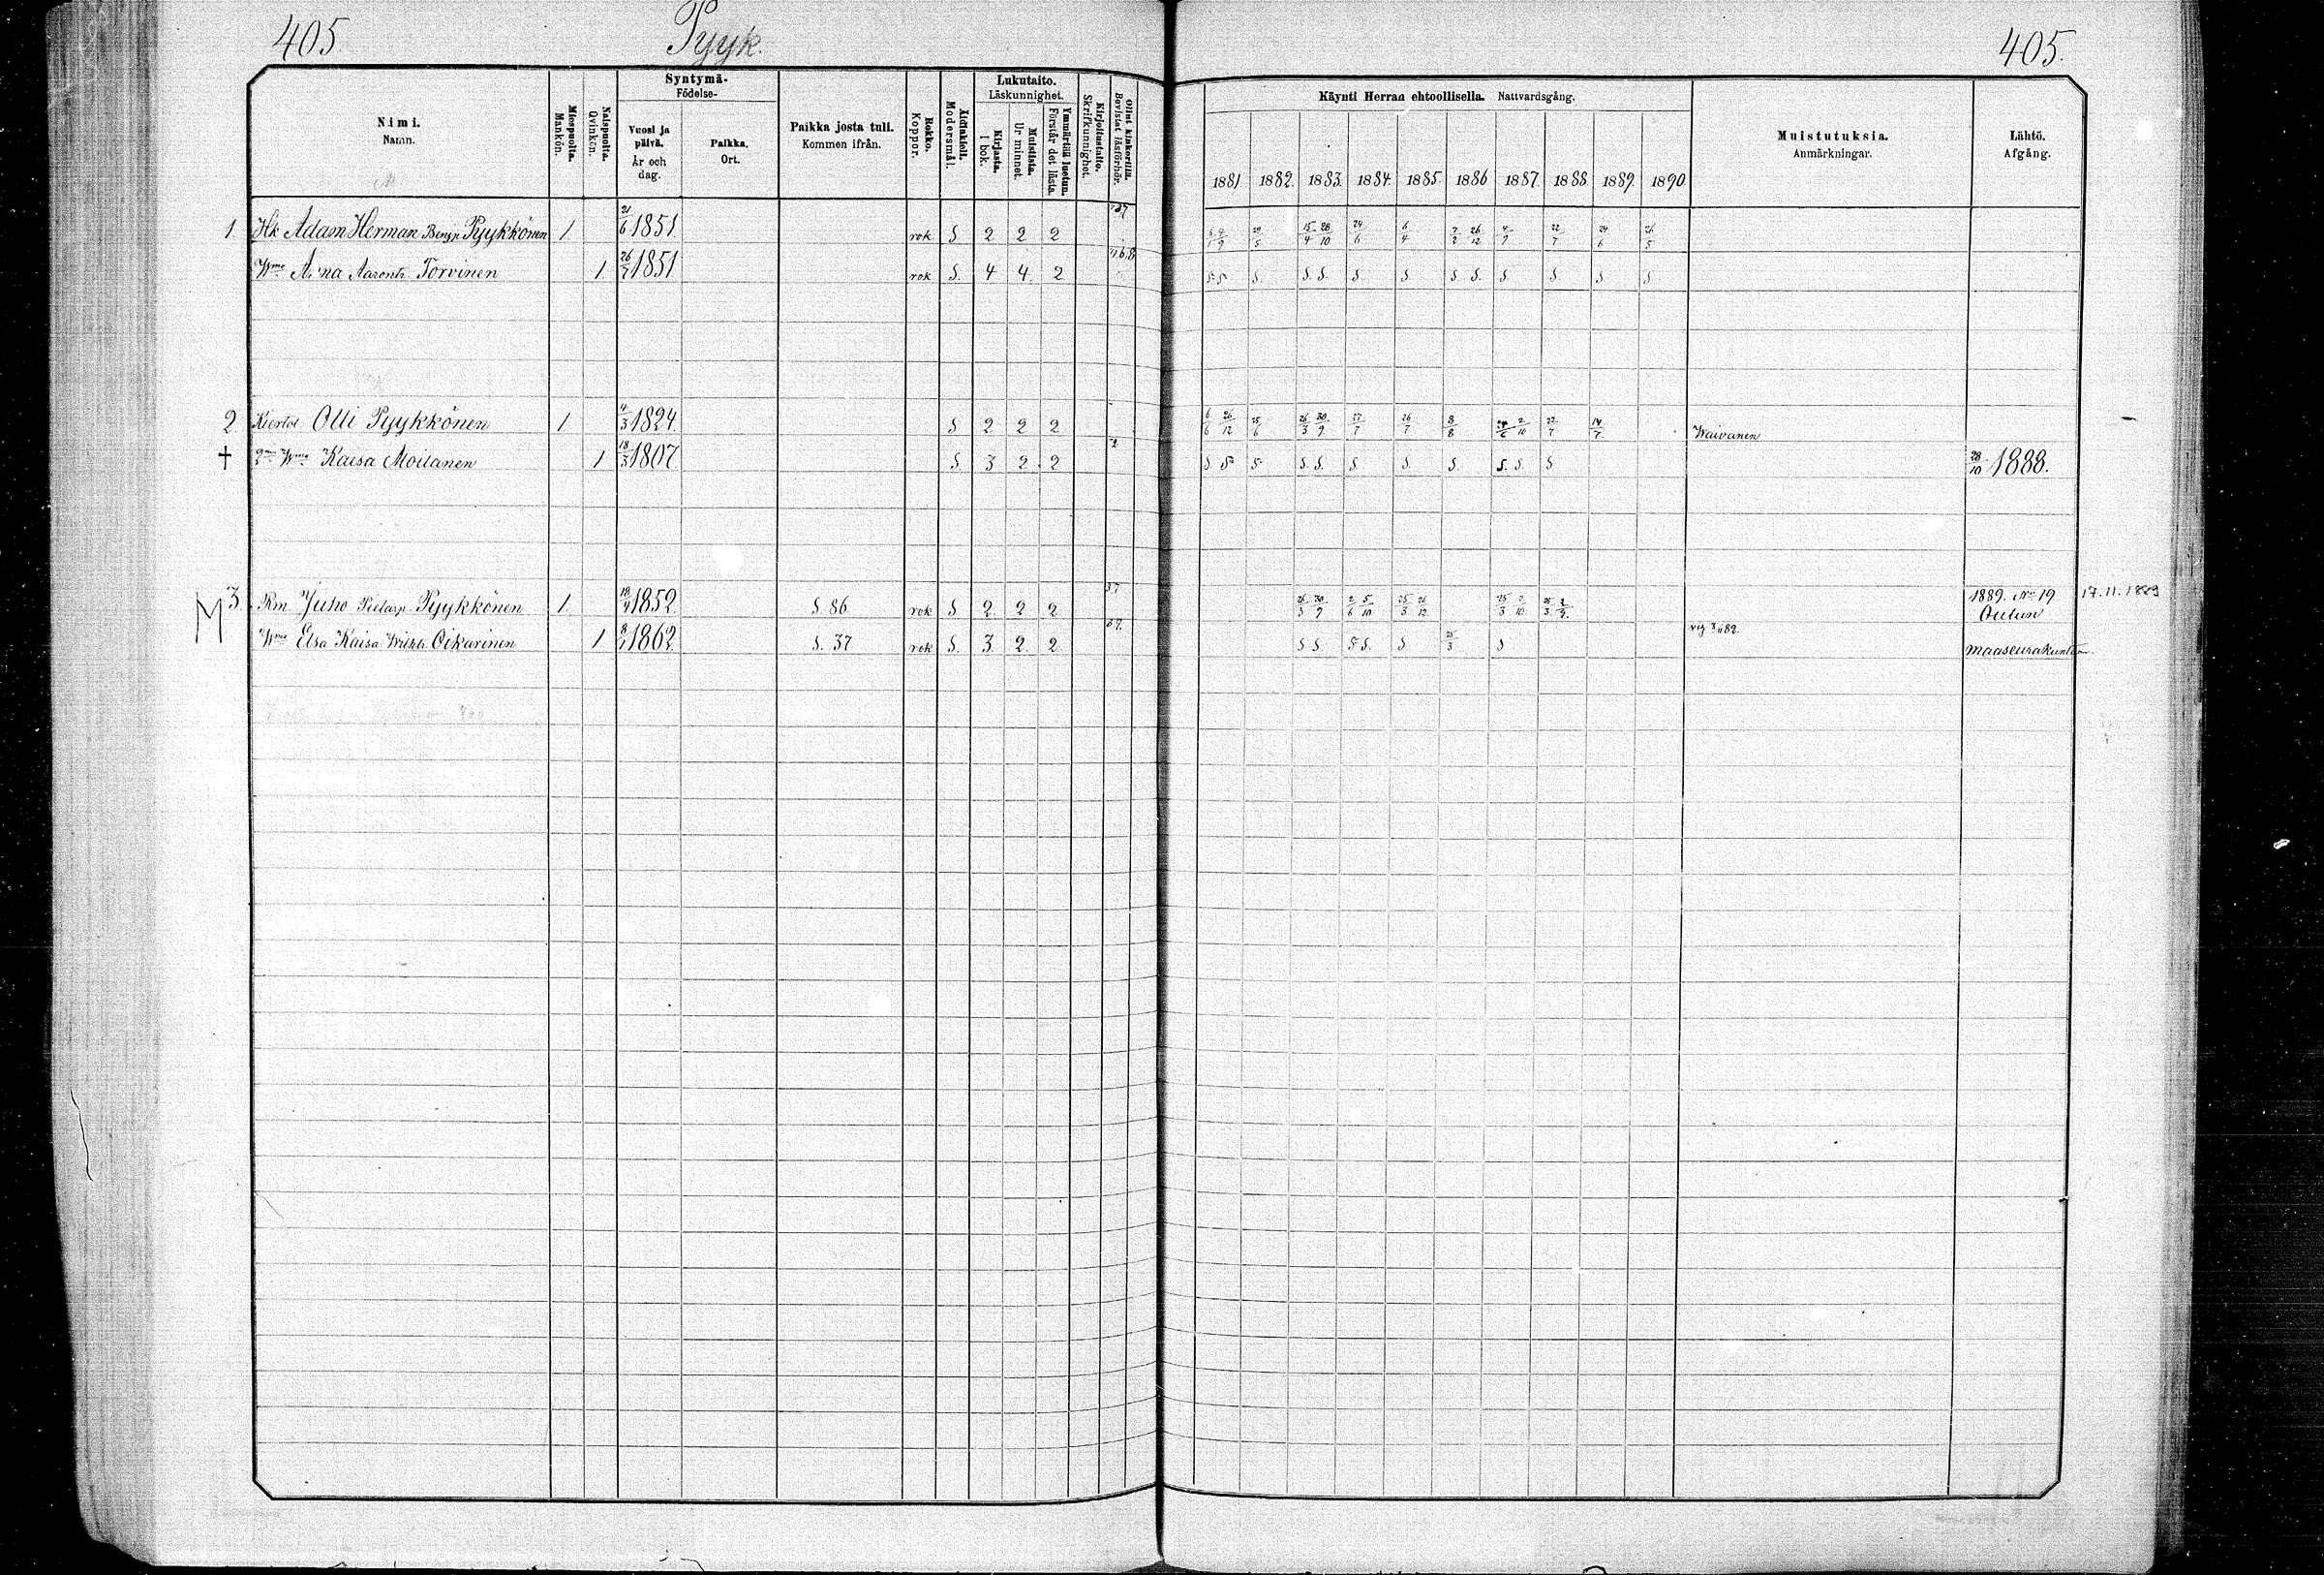 405 Pyyk. 405.
Nimi. Namn.
Miespuolta. Mankön.
Naispuolta. Qvinkön.
Syntymä- Födelse-
Vuosi ja päivä. År och dag.
Paikka. Ort.
Paikka josta tuli. Kommen ifrån.
Rokko. Koppor.
Äidinkieli. Modersmål.
Lukutaito. Läskunnighet.
Kirjasta. I bok.
Muistista. Ur minnet.
Ymmärtää luetun. Förstår det lästa.
Kirjoitustaito. Skrifkunnighet.
Ollut kinkerillä. Bevistat läsförhör.
Käynti Herran ehtoollisella. Nattvardsgång.
1881. 1882. 1883. 1884. 1885. 1886 1887. 1888. 1889. 1890
Muistutuksia. Anmärkningar.
Lähtö. Afgång.
1 Hk Adam Herman Benj.p. Pyykkönen 1 21/6 1851 rok S 2 2 2 29/5 15/4 28/10 24/6 6/4 2/2 26/12 4/9 22/7 24/6 26/5
Wmo Anna Aarontr. Torvinen 1 1851 rok S. 4 4 2 S. S. S. S S S. S. S S S S
2 Olli Pyykkönen 1 4/3 1824. S 2 2 2 6/6 26/12 25/6 26/3 30/9 27/7 26/7 8/8 2/10 22/7 14/7 Waivanen
† 2n Wmo Kaisa Moilanen 1 18/3 1807 S. 3 2 2 S. S. S. S. S. S. S. S. S 28/10 1888.
M 3. Rm Juho Pietarp. Pyykkönen 1 18/4 1852. S. 86 rok S 2 2 2 37 26/3 30/9 2/6 5/10 25/3 26/12 25/3 2/10 25/3 2/9. 1889. No 19 Oulun 17.11.1889
Wmo Elsa Kaisa Oikarinen 1 1862. S. 37 rok S. 3 2 2 S S S S. S 25/3 S maaseurakuntaan